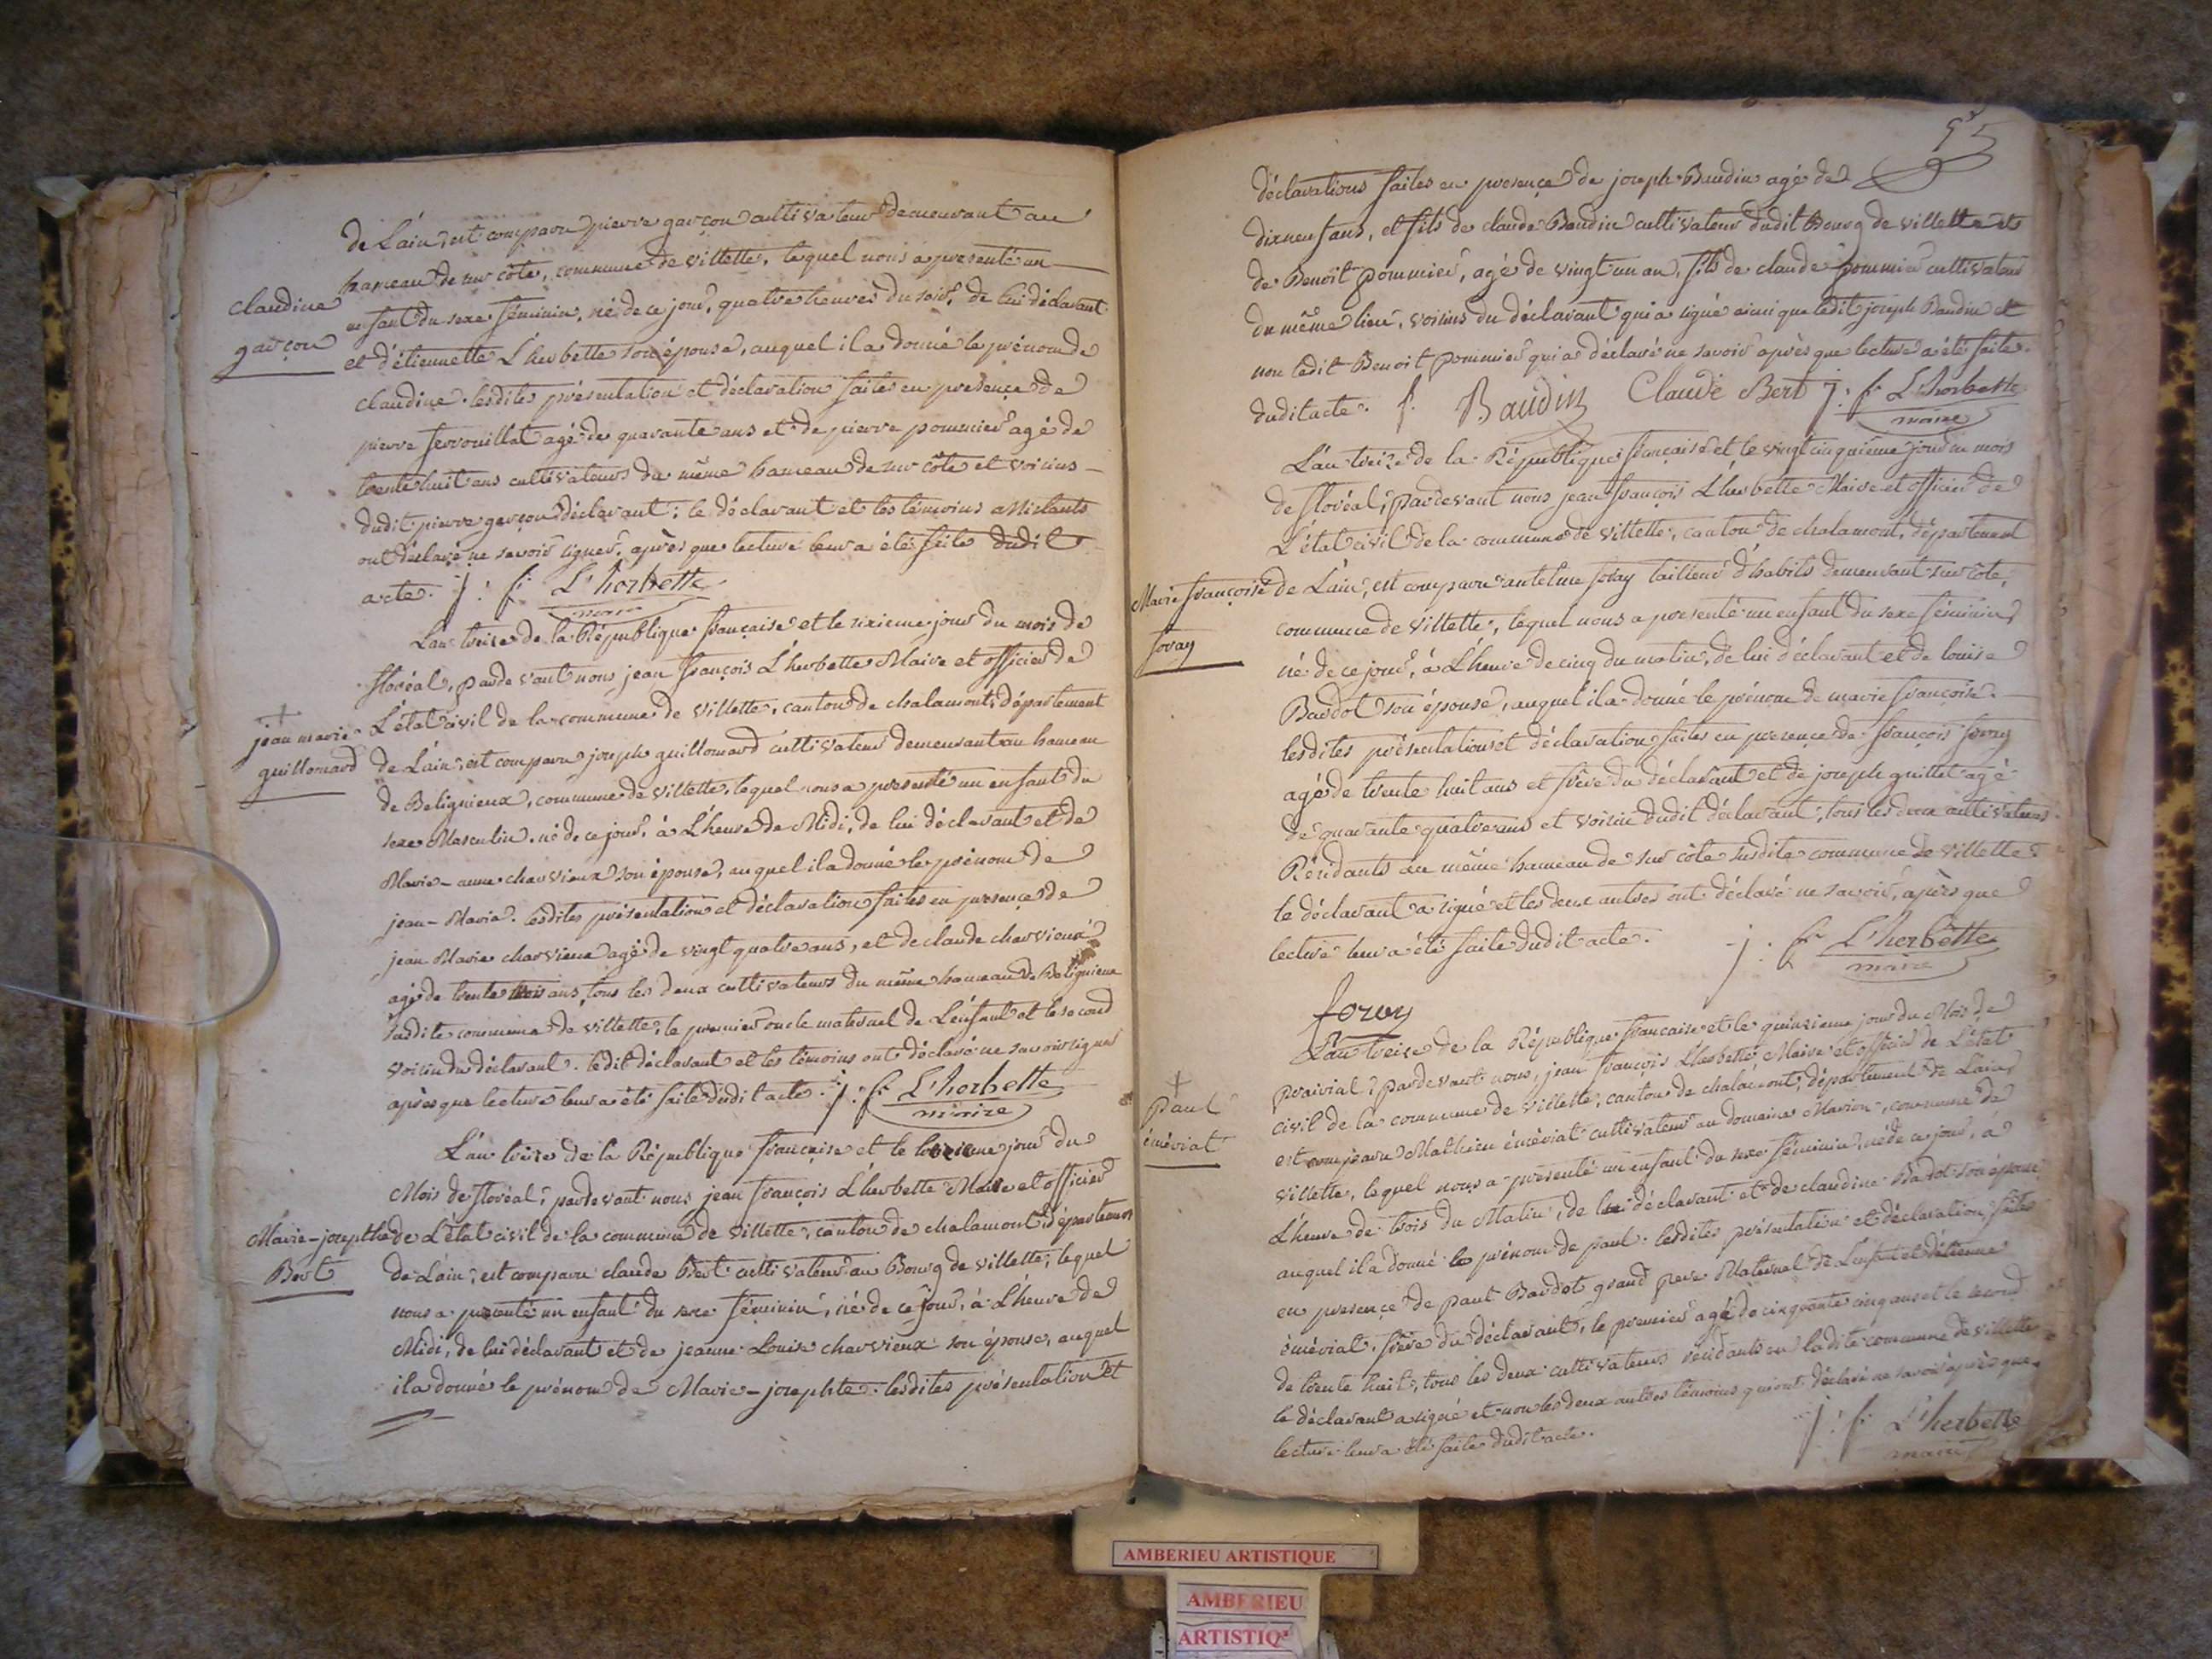 de Láin, est comparu pierre garçon cultivateur demeurant au
hameau de sur côte, commune de villette, lequel nous a présenté un
claudine
garçon
enfant du sexe féminin, né de ce jour, quatre heures du soir, de lui déclarant
et d'étiennette L'herbette son épouse, auquel il a donné le prénom de
claudine. lesdites présentation et déclaration faites en presençe de
pierre servouillat agé de quarante ans et de pierre pommier agé de
trente huit ans cultivateurs du même hameau de sur côte et voisins
dudit pierre garçon déclarant; le déclarant et les témoins
ont déclaré ne savoir signer, après que lecture leur a été faite dudit
acte. j: f: L'herbette
maire
L'an treize de la République française et le sixieme jour du mois de
floréal, pardevant nous jean françois L'herbette Maire et officier de
L'état civil de la commune de villette, canton de chalamont, département
jean marie
guillomard
de Láin, est comparu joseph guillomard cultivateur demeurant au hameau
de Belignieux, commune de villette, lequel nous a presenté un enfant du
sexe Masculin, né de ce jour, à L'heure de Midi, de lui déclarant et de
Marie-anne charvieux son épouse, auquel il a donné le prénom de
jean-Marie. lesdites présentation et déclaration faites en presençe de
jean Marie charvieux agé de vingt quatre ans, et de claude charvieux
agé de trente trois ans, tous les deux cultivateurs du même hameau de Belignieux
susdite commune de villette, le premier oncle maternel de L'enfant et le second
voisin du déclarant. ledit déclarant et les témoins ont déclaré ne savoir signer
après que lecture leur a été faite dudit acte. j: f: L'herbette
maire
L'an treize de la République française et le jour du
Mois de floréal, pardevant nous jean françois L'herbette Maire et officier
Marie-josephte
Bert
de L'état civil de la commune de villette, canton de chalamont, département
de Láin, est comparu claude Bert cultivateur au Bourg de villette, lequel
nous a presenté un enfant du sexe féminin, né de ce jour, à L'heure de
Midi, de lui déclarant et de jeanne Louise charvieux son épouse, auquel
il a donné le prénom de Marie-josephte. lesdites présentation et
55
déclarations faites en presençe de joseph Baudin agé de
dix neuf ans, et fils de claude Baudin cultivateur dudit Bourg de villette et
de Benoît pommier, agé de vingt un an, fils de claude pommier cultivateur
du même lieu, voisins du déclarant qui a signé ainsi que ledit joseph Baudin et
non ledit Benoit pommier qui a déclaré ne savoir après que lecture a été faite
dudit acte. f. Baudin Claude Bert j: f: L'herbette
maire
L'an treize de la République française et le vingt cinquième jour du mois
de floréal, pardevant nous jean françois L'herbette Maire et officier de
L'état civil de la commune de villette, canton de chalamont, département
Marie françoise
foray
de Láin, est comparu antelme foray tailleur d'habits demeurant sur côte,
commune de villette, lequel nous a presenté un enfant du sexe féminin,
né de ce jour, à L'heure de cinq du matin, de lui déclarant et de louise
Bardot son épouse, auquel il a donné le prénom de marie françoise.
lesdites présentation et déclaration faites en presence de françois foray
agé de trente huit ans et frère du déclarant et de joseph guillet agé
de quarante quatre ans et voisin dudit déclarant, tous les deux cultivateurs
Résidants au même hameau de sur côte susdite commune de villette.
le déclarant a signé et les deux autres ont déclaré ne savoir, après que
lecture leur a été faite dudit acte. j: f: L'herbette
maire
foray
L'an treize de la République française et le quinzieme jour du Mois de
prairial, pardevant nous, jean françois L'herbette Maire et officier de L'état
paul
émériat
civil de la commune de villette, canton de chalamont, département de Láin,
est comparu Mathieu émériat cultivateur au domaine Marion, commune de
villette, lequel nous a presenté un enfant du sexe féminin, né de ce jour, à
L'heure de trois du Matin, de lui déclarant et de claudine Bardot son épouse
auquel il a donné le prénom de paul. lesdites présentation et déclaration faites
en presençe de paul Bardot grand pere Maternel de L'enfant et d'étienne
émériat, frère du déclarant, le premier agé de cinquante cinq ans et le second
de trente huit, tous les deux cultivateurs résidants en ladite commune de villette
le déclarant a signé et non les deux autres témoins qui ont déclaré ne savoir après que
lecture leur a été faite dudit acte. j: f: L'herbette
maire
AMBERIEU ARTISTIQUE
AMBERIEU
ARTISTIQ